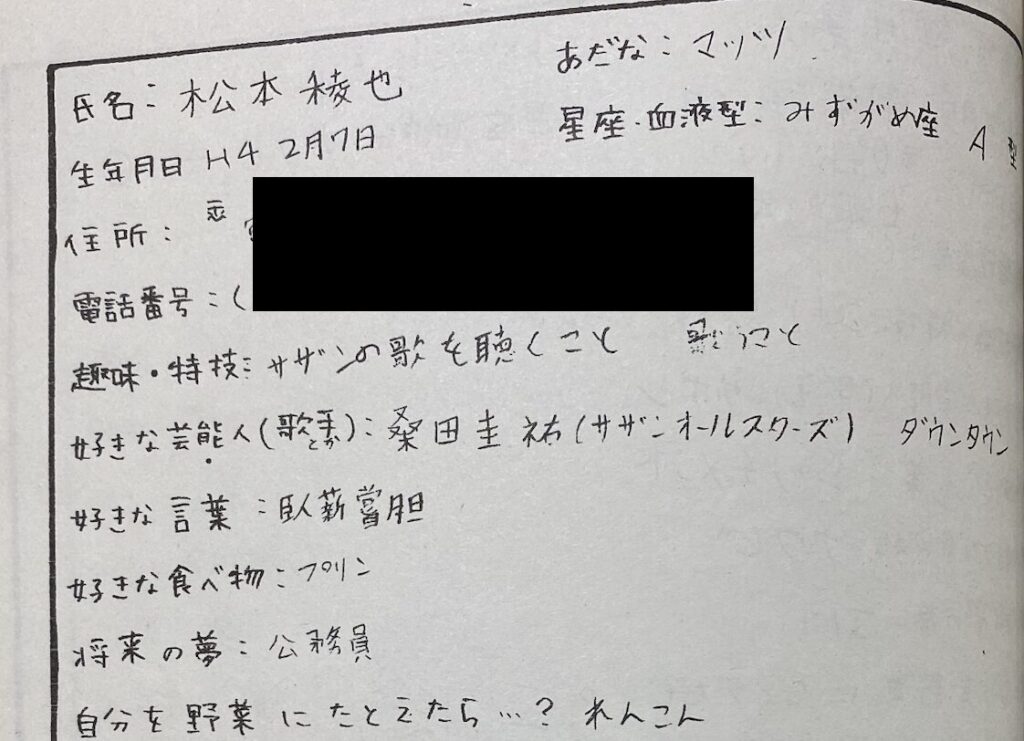 氏名：松本稜也
あだな：マッツ
生年月日 H4 2月7日
星座・血液型：みずがめ座 A型
住所：
電話番号：(
趣味・特技：サザンの歌を聴くこと 歌うこと
好きな芸能人(歌手とか)：桑田圭祐(サザンオールスターズ) ダウンタウン
好きな言葉：臥薪嘗胆
好きな食べ物：プリン
将来の夢：公務員
自分を野菜にたとえたら…？ れんこん